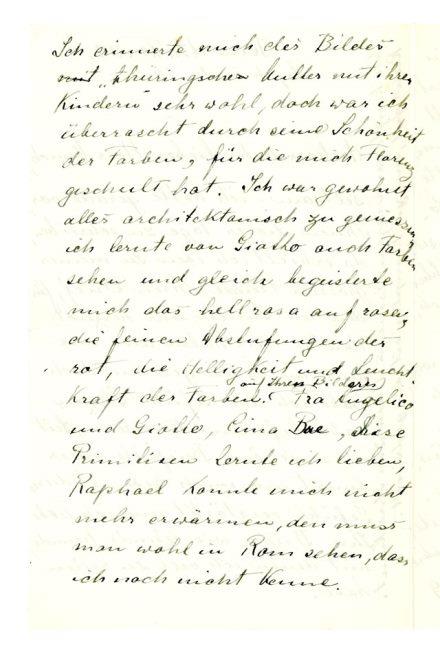 Ich erinnerte mich des Bildes
mit "thüringschen Mutter mit ihren
Kindern" sehr wohl, doch war ich
überrascht durch seine Schönheit
der Farben, für die mich Florenz
geschult hat. Ich war gewohnt
alles architektonisch zu geniessen,
ich lernte von Giotto auch Farben
sehen und gleich begeisterte
mich das hellrosa auf rosa,
die feinen Abstufungen der
rot, die Helligkeit und Leucht-
Kraft der Farben! auf Ihren Bilderes) Fra Angelico
und Giotto, Cima Bue, diese
Primitiven lernte ich lieben,
Raphael konnte mich nicht
mehr erwärmen, den muss
man wohl in Rom sehen, dass
ich noch nicht kenne.